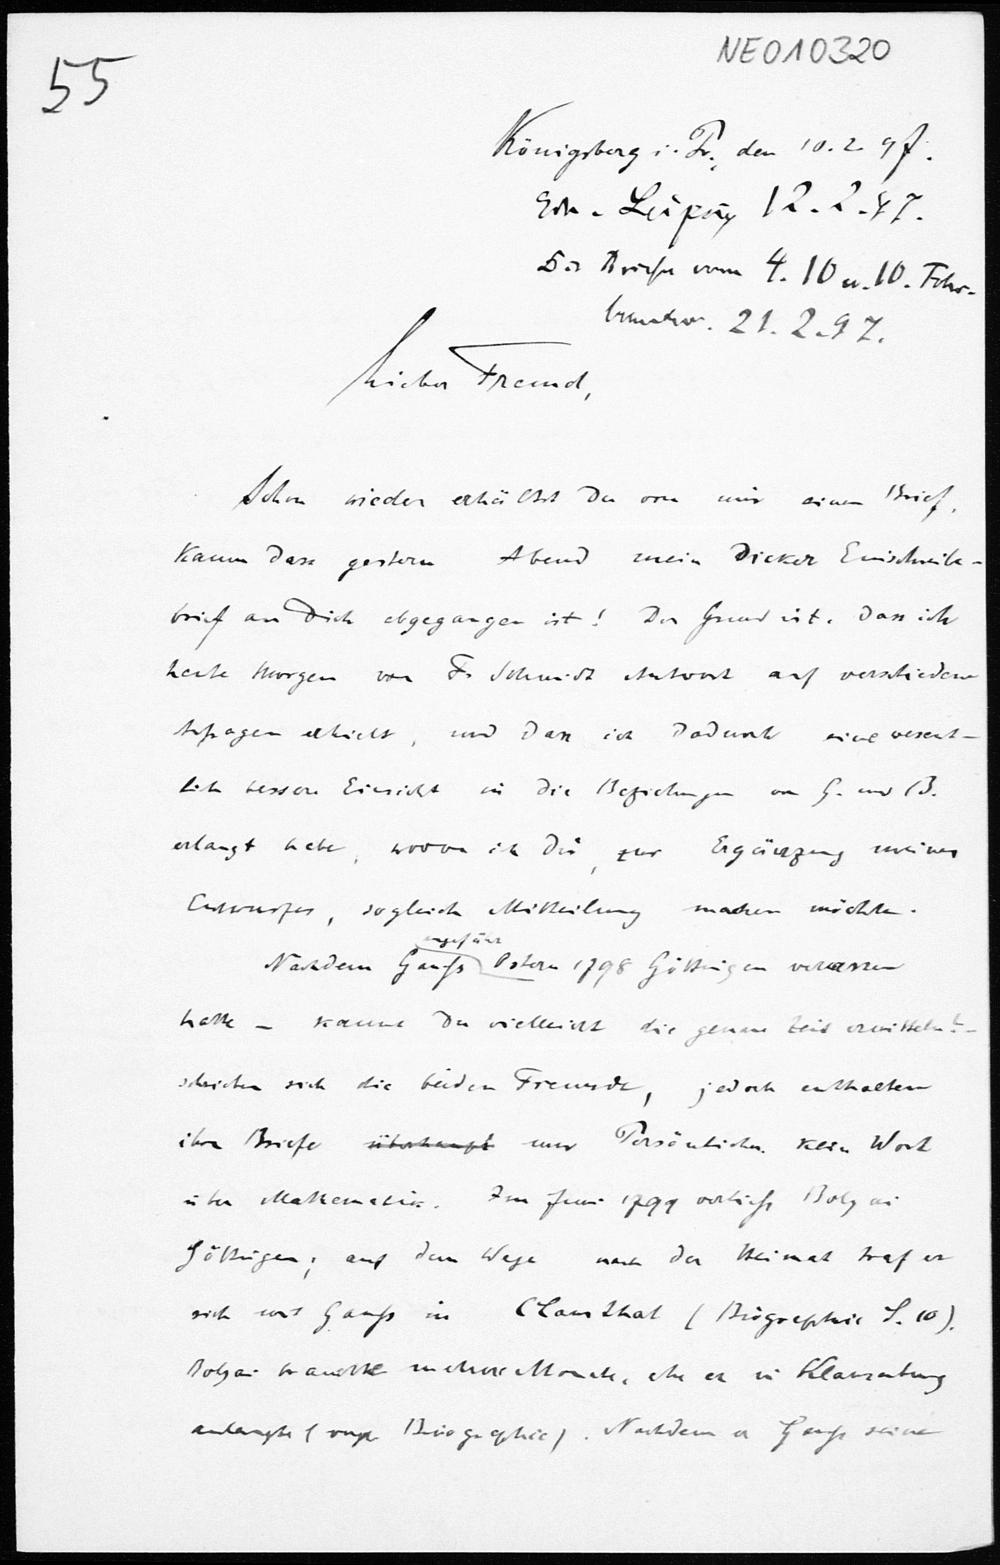 55
NE010320
Königsberg i. Pr., den 10. 2. 97.
Leipzig 12. 2. 97.
Briefe vom 4. 10 u. 10. Febr.
21. 2. 97.
Lieber Freund,
Schon wieder erhältst Du von mir einen Brief,
kaum dass gestern Abend mein dicker Einschreibe-
brief an Dich abgegangen ist! Der Grund ist, dass ich
heute Morgen von Fr. Schmidt Antwort auf verschiedene
Anfragen erhielt, und dass ich dadurch eine wesent-
lich bessere Einsicht in die Beziehungen von G. und B.
erlangt habe, wovon ich Dir, zur Ergänzung meines
Entwurfes, sogleich Mittheilung machen möchte.
ungefähr
Nachdem Gauß Ostern 1798 Göttingen verlassen
hatte – kannst Du vielleicht die genaue Zeit ermitteln? –
schrieben sich die beiden Freunde, jedoch enthalten
ihre Briefe überhaupt nur Persönliches, kein Wort
über Mathematik. Im Juni 1799 verließ Bolyai
Göttingen; auf dem Wege nach der Heimat traf er
sich mit Gauß in Clausthal (Biographie S. 10).
Bolyai brauchte mehrere Monate, ehe er in Klausenburg
anlangte (vergl. Biographie). Nachdem er Gauß seine